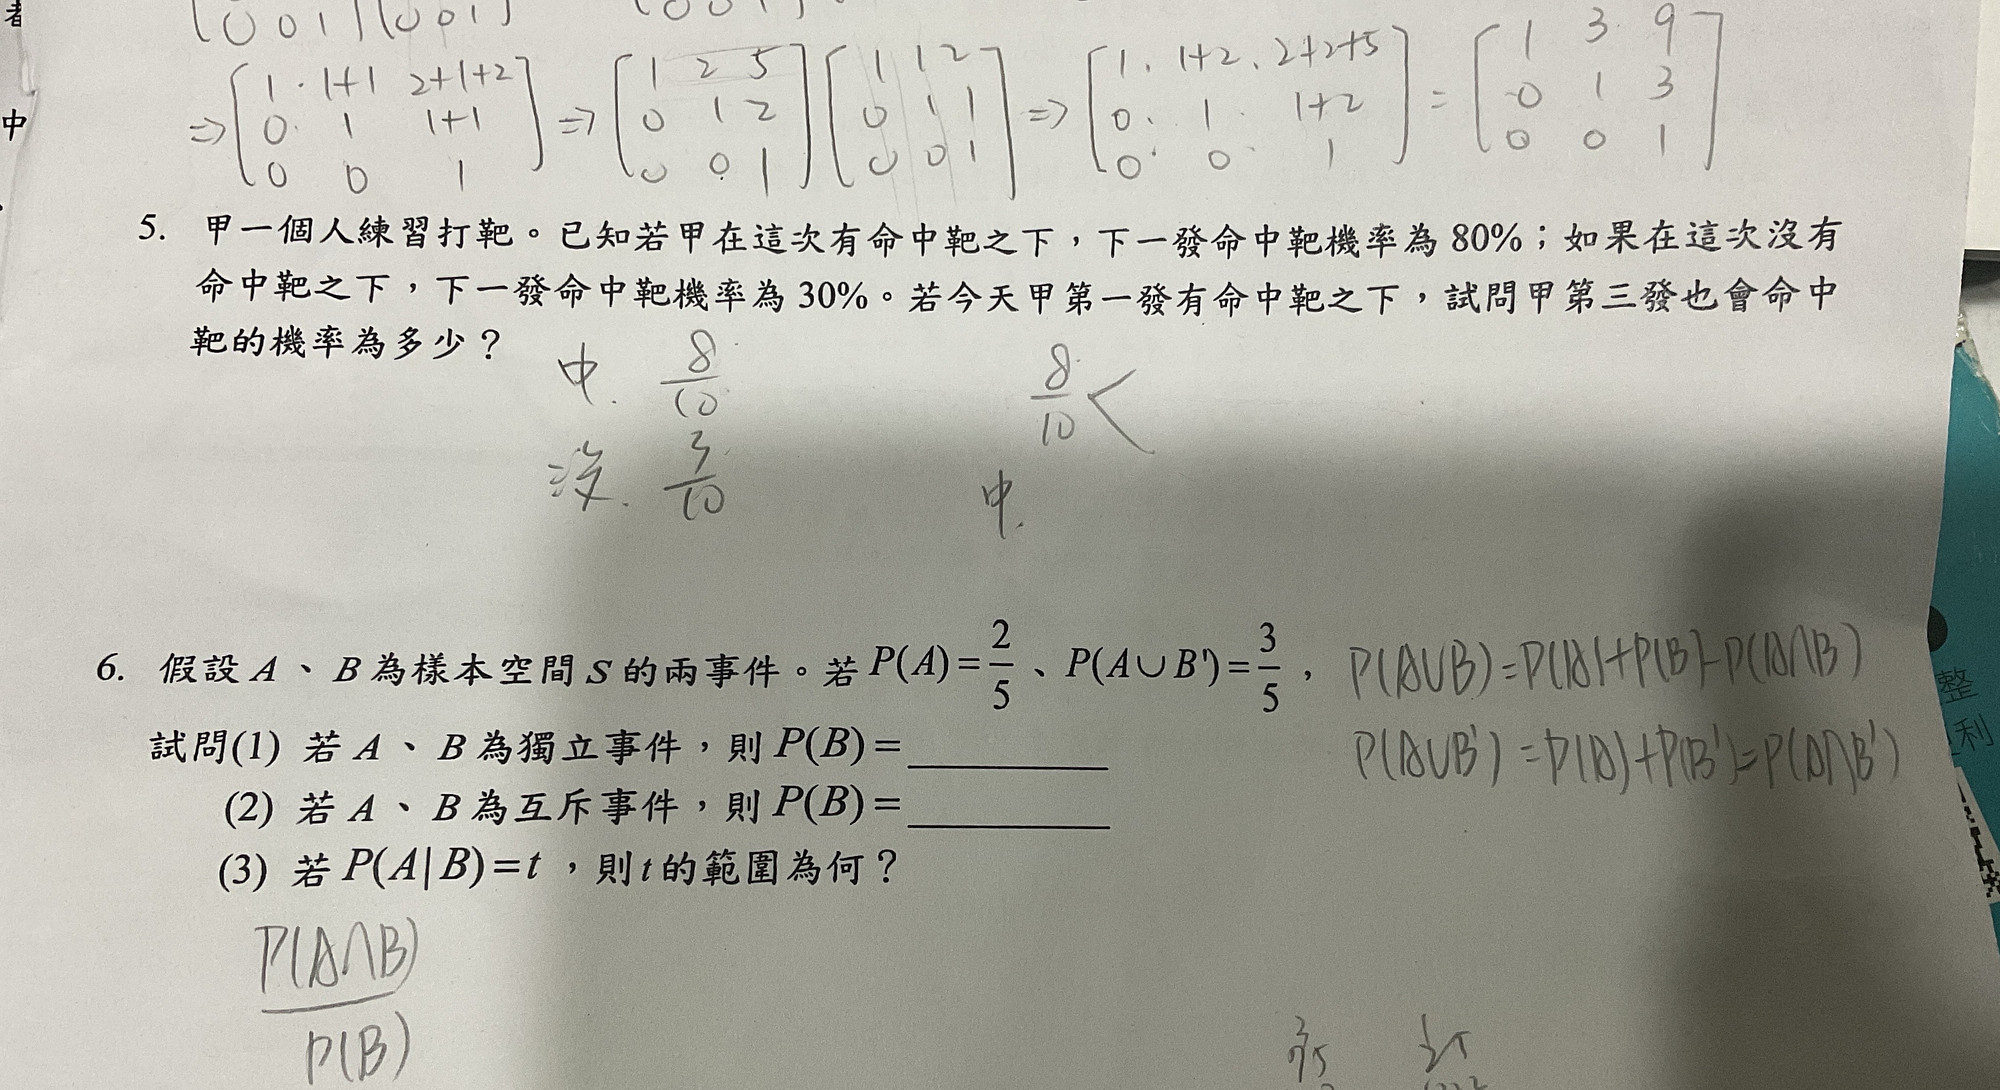 者
中
⇒ [1 1+1 2+1+2 ⇒ [1 2 5] [1 1 2] ⇒ [1 1+2 2+2+5] = [1 3 9]
0 1 1+1 0 1 2 0 1 1 0 1 1+2 0 1 3
0 0 1] 0 0 1 0 0 1 0 0 1 0 0 1
5. 甲一個人練習打靶。已知若甲在這次有命中靶之下，下一發命中靶機率為 80%；如果在這次沒有
命中靶之下，下一發命中靶機率為 30%。若今天甲第一發有命中靶之下，試問甲第三發也會命中
靶的機率為多少？
中. 8/10
沒. 3/10
8/10 <
中.
6. 假設 A、B 為樣本空間 S 的兩事件。若 P(A)=2/5、P(A∪B')=3/5，
P(A∪B)=P(A)+P(B)-P(A∩B)
試問(1) 若 A、B 為獨立事件，則 P(B)=
P(A∪B')=P(A)+P(B')=P(A∩B')
(2) 若 A、B 為互斥事件，則 P(B)=
(3) 若 P(A|B)=t，則 t 的範圍為何？
P(A∩B)
P(B)
整
利